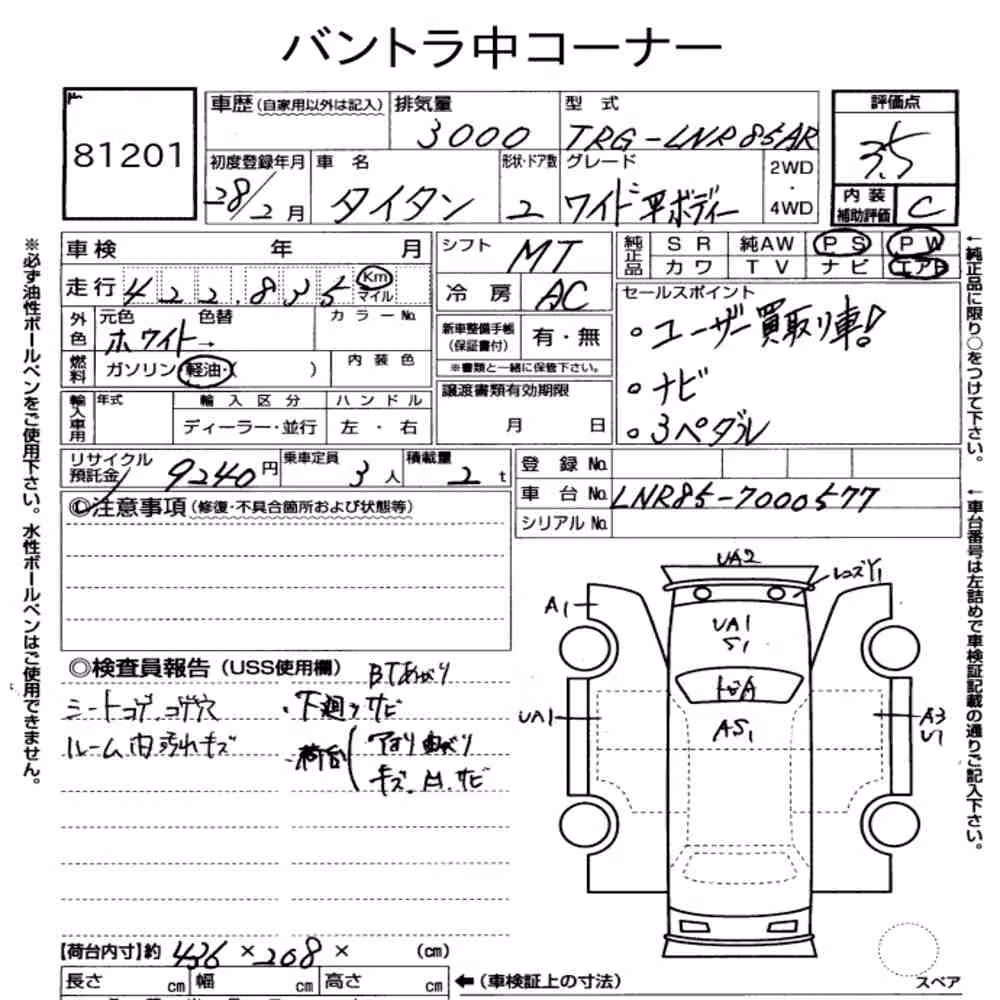 バントラ中コーナー
81201
車歴 (自家用以外は記入)
排気量
3000
型式
TRG-LNR85AR
評価点
3.5
初度登録年月
28/2月
車名
タイタン
形状・ドア数
2
グレード
ワイド 平ボディー
2WD
・
4WD
内装
補助評価
C
車検 年 月
シフト
MT
純正品
SR 純AW PS PW
カワ TV ナビ エアB
走行 422.835 Km
マイル
冷房
AC
セールスポイント
・ユーザー買取り車!
・ナビ
・3ペダル
外色
元色 色替
ホワイト→
カラーNo.
新車整備手帳
(保証書付)
有・無
※書類と一緒に保管下さい。
燃料
ガソリン・軽油・( )
内装色
譲渡書類有効期限
月 日
輸入車用
年式
輸入区分
ハンドル
ディーラー・並行
左・右
リサイクル
預託金
9240円
乗車定員
3人
積載量
2t
登録No.
車台No.
LNR85-7000577
シリアルNo.
◎注意事項 (修復・不具合箇所および状態等)
◎検査員報告 (USS使用欄)
シートコゲ.コゲ穴
ルーム内汚れキズ
・下廻りサビ
・荷台
キズ.凹.サビ
UA2
レンズY1
A1
UA1
S1
AS1
UA1
A3
U1
【荷台内寸】約 436 × 208 × (cm)
長さ cm 幅 cm 高さ cm
←(車検証上の寸法)
スペア
※必ず油性ボールペンをご使用下さい。水性ボールペンはご使用できません。
←純正品に限り○をつけて下さい。
←車台番号は左詰めで車検証記載の通りご記入下さい。